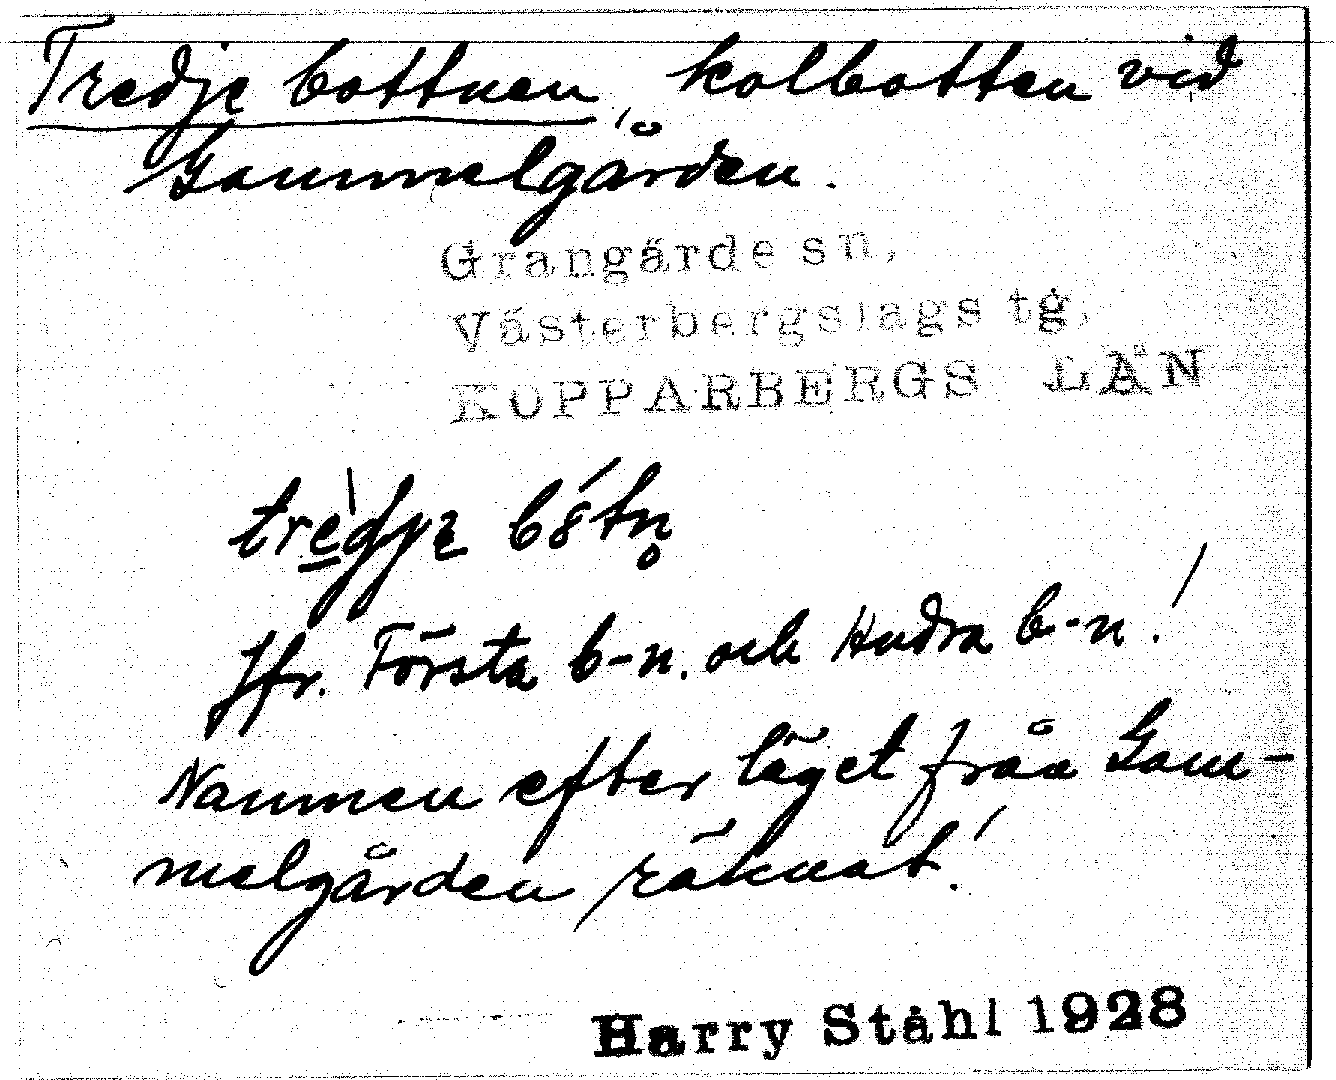 Tredje bottnen, kolbotten vid
Gammelgården.
Grangärde sn,
Västerbergslags tg,
KOPPARBERGS LÄN
Jfr. Första b-n. och Andra b-n!
Namnen efter läget från Gam-
melgården räknat!
Harry Ståhl 1928